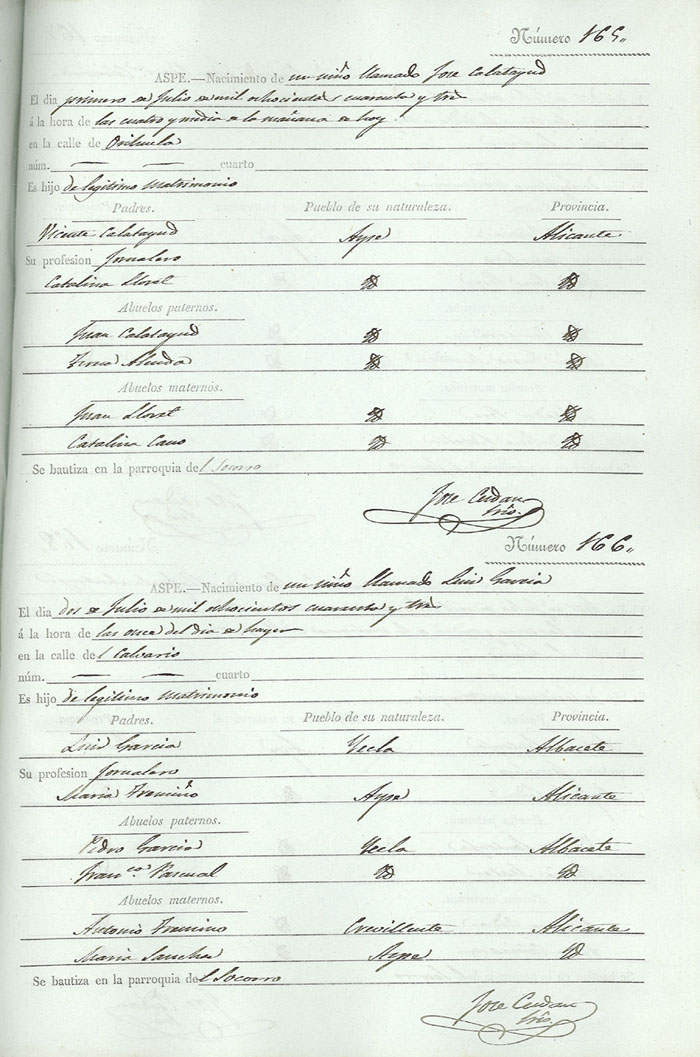 Número 165.
ASPE.—Nacimiento de un niño llamado Jose Calatayud
El dia primero de Julio de mil ochocientos cuarenta y tres
á la hora de las cuatro y media de la mañana de hoy.
en la calle de Orihuela
núm. — — cuarto
Es hijo de legitimo Matrimonio
Padres. Pueblo de su naturaleza. Provincia.
Vicente Calatayud Aspe Alicante
Su profesion Jornalero
Catalina Lloret Yd Yd
Abuelos paternos.
Juan Calatayud Yd Yd
Teresa Yd Yd
Abuelos maternos.
Juan Lloret Yd Yd
Catalina Cano Yd Yd
Se bautiza en la parroquia del Socorro
Jose
Srio.
Número 166.
ASPE.—Nacimiento de un niño llamado Luis Garcia
El dia dos de Julio de mil ochocientos cuarenta y tres
á la hora de las once del dia de hayer
en la calle del Calvario
núm. — — cuarto
Es hijo de legitimo Matrimonio
Padres. Pueblo de su naturaleza. Provincia.
Luis Garcia Yecla Albacete
Su profesion Jornalero
Maria Tremiño Aspe Alicante
Abuelos paternos.
Pedro Garcia Yecla Albacete
Fran.co Pascual Yd Yd
Abuelos maternos.
Antonio Tremino Crevillente Alicante
Maria Sanchez Aspe Yd
Se bautiza en la parroquia del Socorro
Jose
Srio.